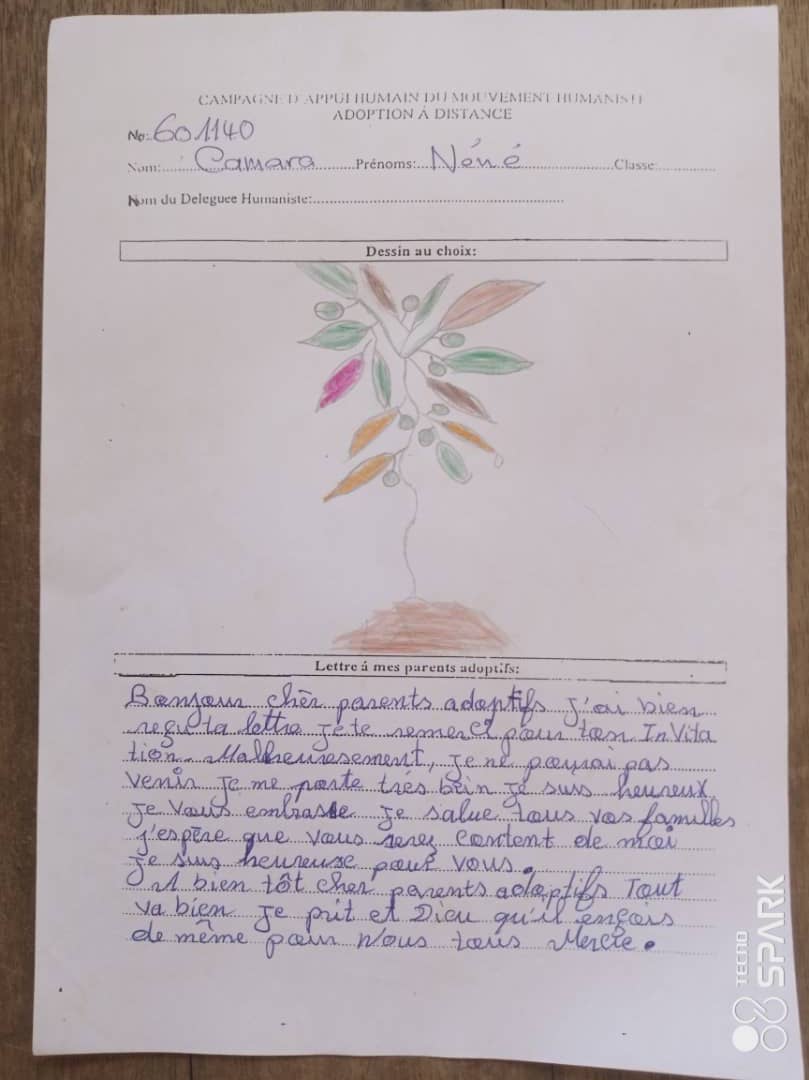 CAMPAGNE D'APPUI HUMAIN DU MOUVEMENT HUMANISTE
ADOPTION À DISTANCE
No: 601140
Nom: Camara Prénoms: Néné Classe:
Nom du Deleguee Humaniste:
Dessin au choix:
Lettre á mes parents adoptifs:
Bonjour chèr parents adoptifs j'ai bien
reçu ta lettre je te remerci pour ton InVita
tion. Malheureusement, je ne pourai pas
venir je me porte trés bein je suis heureux
je vous embrasse je salue tous vos familles
j'espère que vous serez content de moi
je suis heureuse pour vous.
A bien tôt cher parents adoptifs Tout
va bien je prit et Dieu qu'il en
de même pour Nous tous Mercie.
TECNO
SPARK